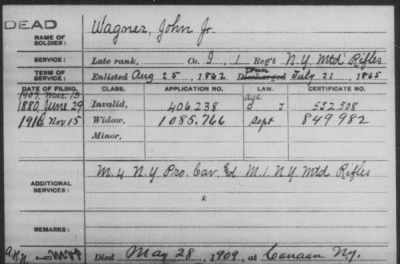 DEAD
NAME OF SOLDIER: Wagner, John Jr.
SERVICE: Late rank, Co. I, 1 Reg't N.Y. Mtd Rifles
TERM OF SERVICE: Enlisted Aug 25, 1862 Discharged July 21, 1865
DATE OF FILING. CLASS. APPLICATION NO. LAW. CERTIFICATE NO.
1907, Mar. 13 age
1880, June 29 Invalid, 406238 J 552508
1916, Nov 15 Widow, 1085.766 Sept 849982
Minor,
ADDITIONAL SERVICES: M. 4 N.Y Pro. Cav. & M. 1. N.Y Mtd Rifles
REMARKS:
Died May 28, 1909, at Canaan NY.